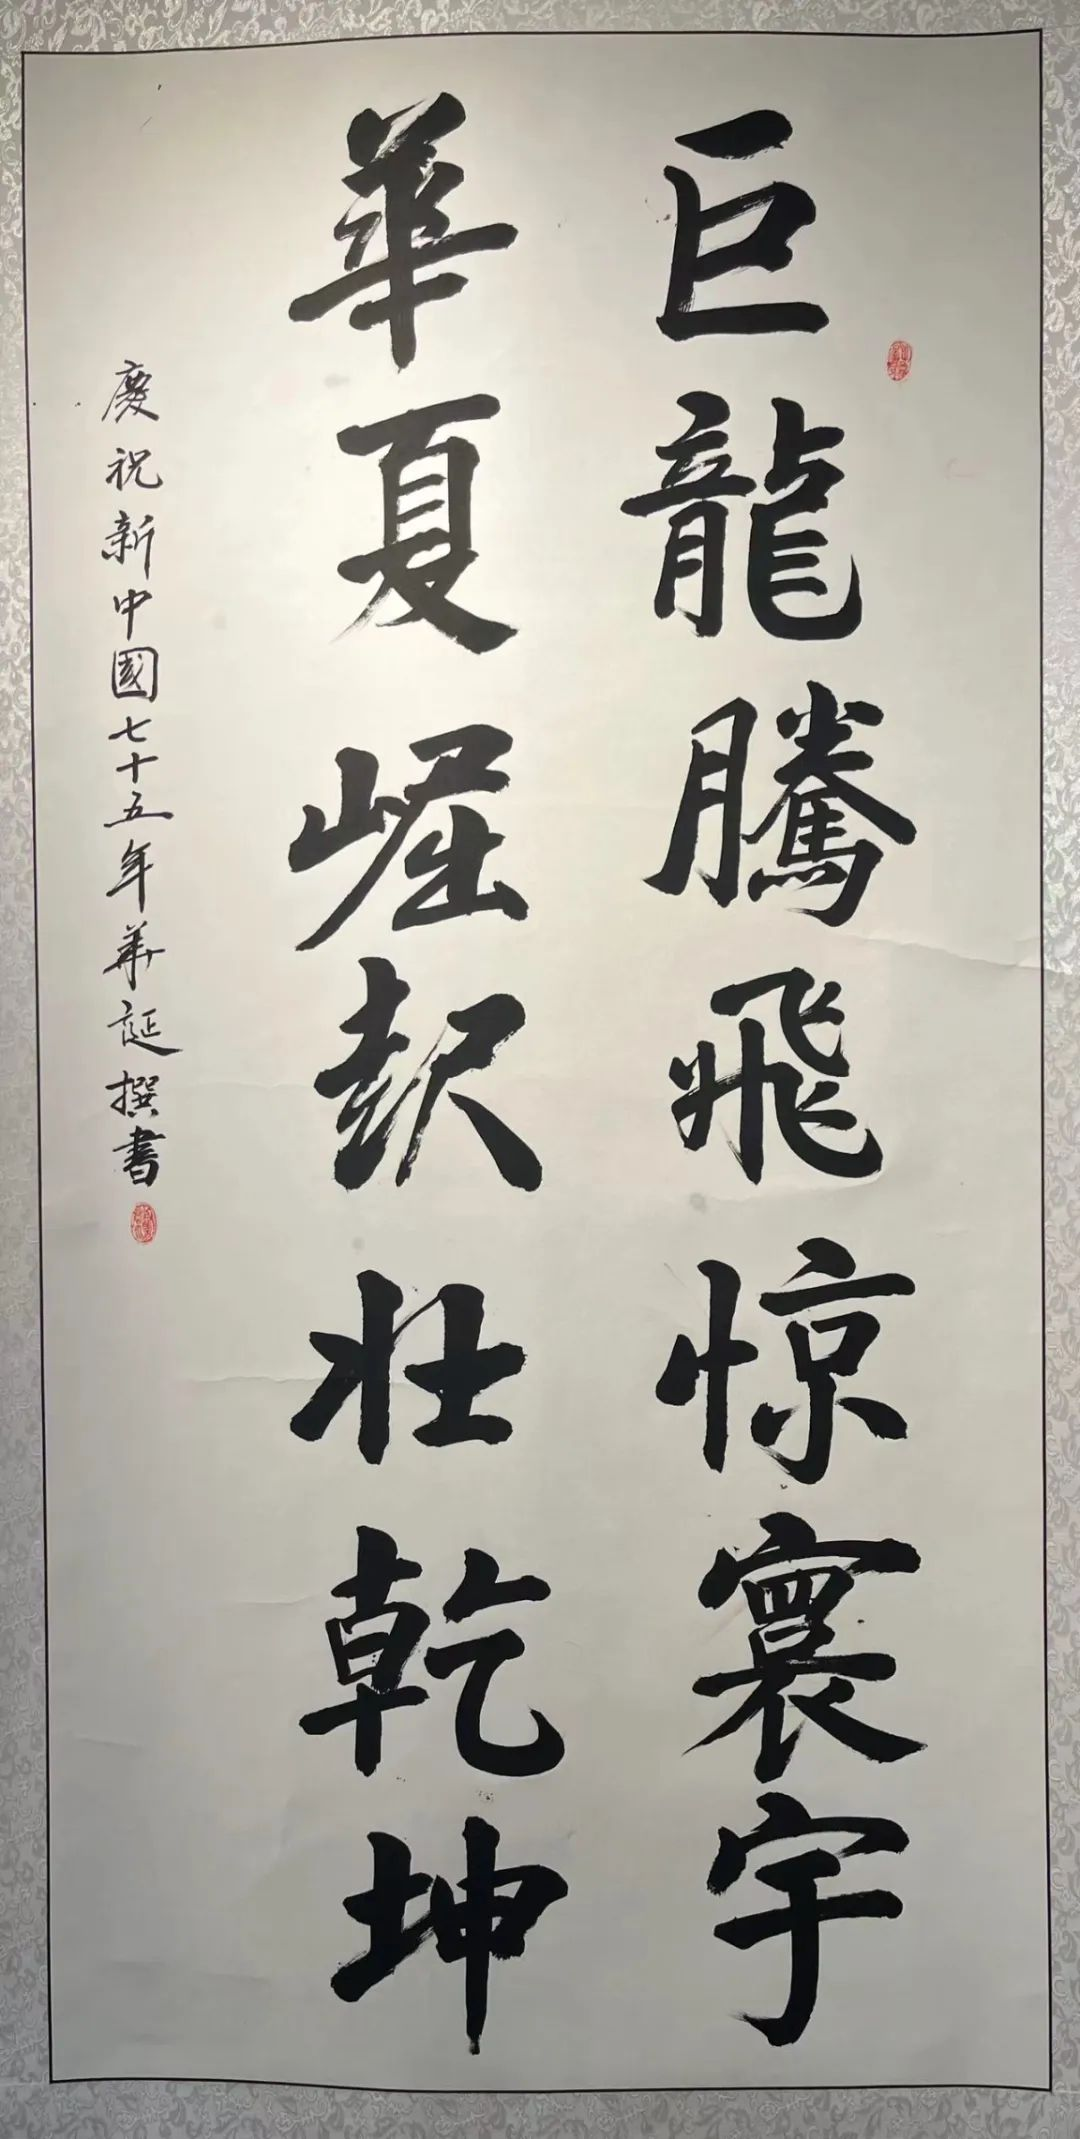 巨龍騰飛惊寰宇
華夏崛起壯乾坤
慶祝新中國七十五年華誕撰書